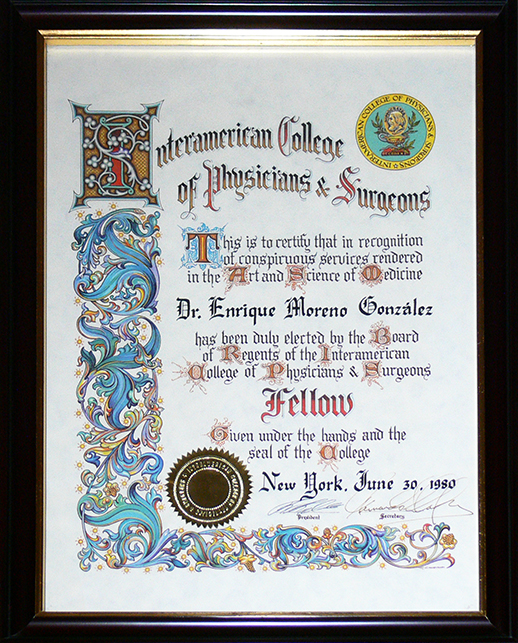 Interamerican College
of Physicians & Surgeons
INTERAMERICAN COLLEGE OF PHYSICIANS & SURGEONS
This is to certify that in recognition
of conspiruous services rendered
in the Art and Science of Medicine
Dr. Enrique Moreno González
has been duly elected by the Board
of Regents of the Interamerican
College of Physicians & Surgeons
Fellow
Given under the hands and the
seal of the College
New York, June 30, 1980
President Secretary